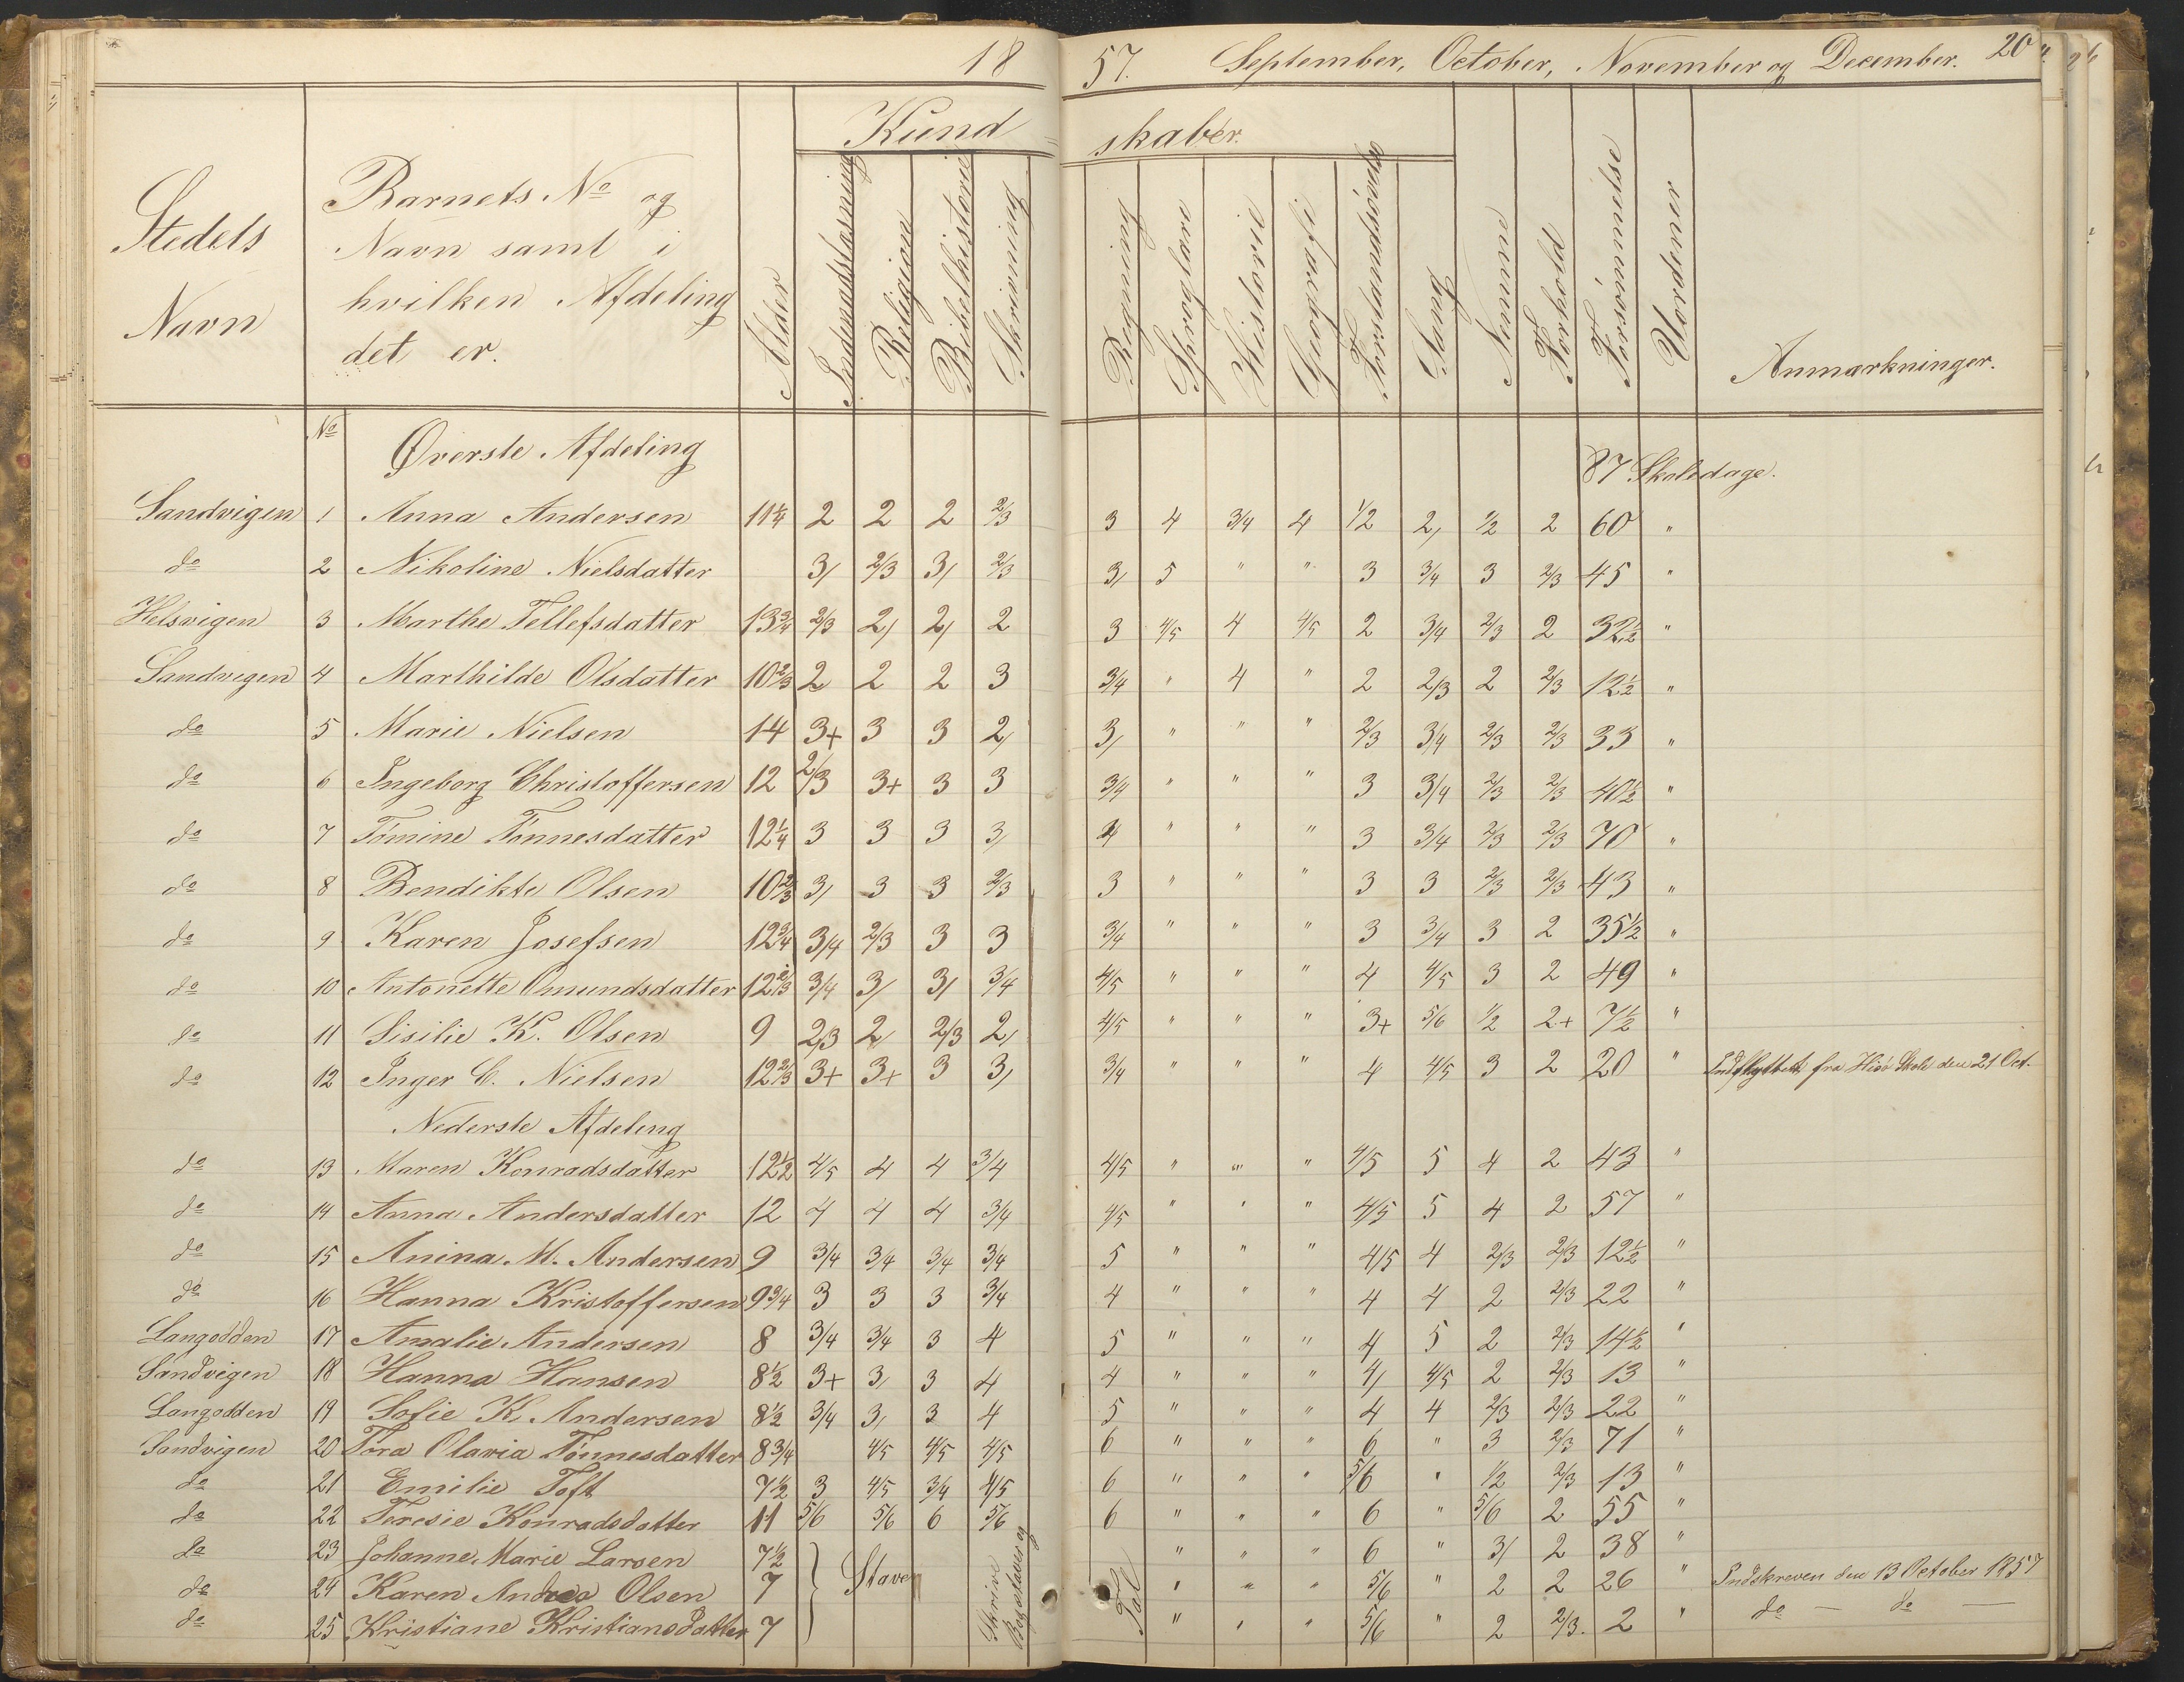 18 57. September, October, November og December. 20
Kund skaber.
Stedets Navn
Barnets No og Navn samt i hvilken Afdeling det er.
Alder
Indenadslæsning
Religion
Bibelhistorie
Skrivning
Regning
Sproglære
Historie
Geografi
Forstandsøvelse
Sang
Nemme
Forhold
Forsømmelse
Uordener
Anmærkninger.
No Øverste Afdeling 87 Skoledage.
Sandvigen 1 Anna Andersen 11 1/4 2 2 2 2/3 3 4 3/4 4 1/2 2, 1/2 2 60 "
do 2 Nikoline Nielsdatter 3/ 2/3 3/ 2/3 3/ 5 " " 3 3/4 3 2/3 45 "
Helsvigen 3 Marthe Tellefsdatter 13 3/4 2/3 2/ 2/ 2 3 4/5 4 4/5 2 3/4 2/3 2 32 1/2 "
Sandvigen 4 Marthilde Olsdatter 10 2/3 2 2 2 3 3/4 " 4 " 2 2/3 2 2/3 12 1/2 "
do 5 Marie Nielsen 14 3+ 3 3 2/ 3/ " " " 2/3 3/4 2/3 2/3 33 "
do 6 Ingeborg Christoffersen 12 2/3 3+ 3 3 3/4 " " " 3 3/4 2/3 2/3 40 1/2 "
do 7 Tømine Tønnesdatter 12 1/4 3 3 3 3/ 4 " " " 3 3/4 2/3 2/3 70 "
do 8 Bendikte Olsen 10 2/3 3/ 3 3 2/3 3 " " " 3 3 2/3 2/3 43 "
do 9 Karen Josefsen 12 3/4 3/4 2/3 3 3 3/4 " " " 3 3/4 3 2 35 1/2 "
do 10 Antonette Omundsdatter 12 2/3 3/4 3/ 3/ 3/4 4/5 " " " 4 4/5 3 2 49 "
do 11 Sisilie K. Olsen 9 2/3 2/ 2/3 2/ 4/5 " " " 3+ 5/6 1/2 2+ 7 1/2 "
do 12 Inger C. Nielsen 12 2/3 3+ 3+ 3 3/ 3/4 " " " 4 4/5 3 2 20 " Indflyttet fra Hisø Skole den 21 Oct.
Nederste Afdeling
do 13 Maren Konradsdatter 12 1/2 4/5 4 4 3/4 4/5 " " " 4/5 5 4 2 43 "
do 14 Anna Andersdatter 12 4 4 4 3/4 4/5 " " " 4/5 5 4 2 57 "
do 15 Anina M. Andersen 9 3/4 3/4 3/4 3/4 5 " " " 4/5 4 2/3 2/3 12 1/2 "
do 16 Hanna Kristoffersen 9 3/4 3 3 3 3/4 4 " " " 4 4 2 2/3 22 "
Langodden 17 Amalie Andersen 8 3/4 3/4 3 4 5 " " " 4 5 2 2/3 14 1/2 "
Sandvigen 18 Hanna Hansen 8 1/2 3+ 3/ 3 4 4 " " " 4/ 4/5 2 2/3 13 "
Langodden 19 Sofie K. Andersen 8 1/2 3/4 3/ 3 4 5 " " " 4 4 2/3 2/3 22 "
Sandvigen 20 Tora Olavia Tønnesdatter 8 3/4 4/5 4/5 4/5 6 " " " 6 " 3 2/3 71 "
do 21 Emilie Toft 7 1/2 3 4/5 3/4 4/5 6 " " " 5/6 " 1/2 2/3 13 "
do 22 Teresie Konradsdatter 11 5/6 5/6 6 5/6 6 " " " 6 " 5/6 2 55 "
do 23 Johanne Marie Larsen 7 1/2 " " " 6 " 3/ 2 38 "
do 24 Karen Andrea Olsen 7 Staver Skrive Bogstaver og Tal " " " 5/6 " 2 2 26 " Indskreven den 13 October 1857
do 25 Kristiane Kristiansdatter 7 " " " 5/6 " 2 2/3. 2 " do — do —